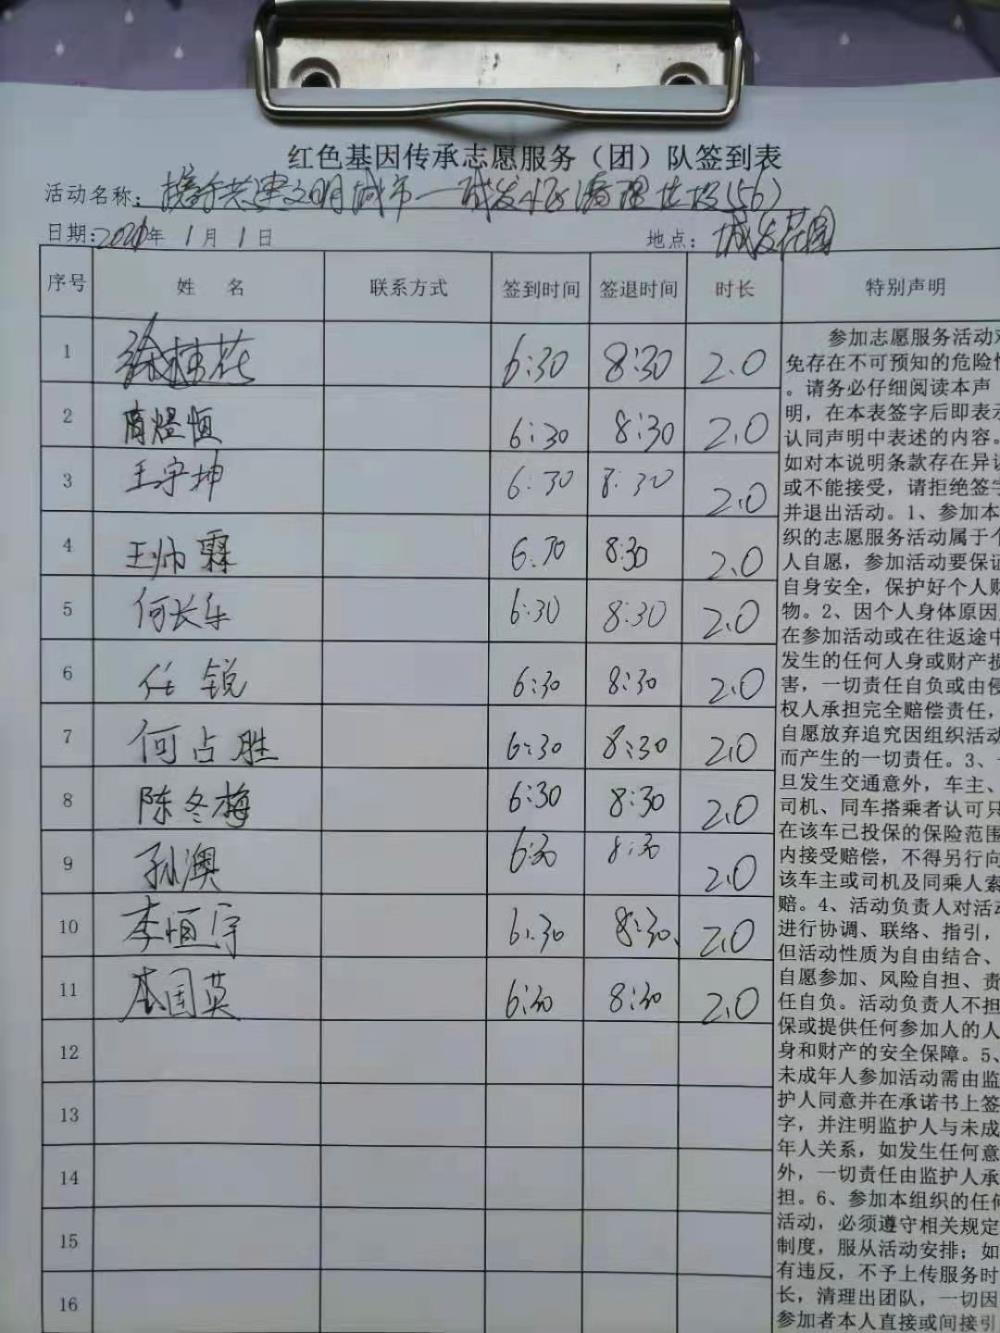 红色基因传承志愿服务（团）队签到表
活动名称：携手共建文明城市一城发小区清理垃圾(56)
日期：2021年 1月 1日 地点：城发花园
序号 姓 名 联系方式 签到时间 签退时间 时长 特别声明
1 徐桂花 6:30 8:30 2.0
2 商煜恒 6:30 8:30 2.0
3 王宇坤 6:30 8:30 2.0
4 王帅霖 6:30 8:30 2.0
5 何长车 6:30 8:30 2.0
6 任锐 6:30 8:30 2.0
7 何占胜 6:30 8:30 2.0
8 陈冬梅 6:30 8:30 2.0
9 孙澳 6:30 8:30 2.0
10 李恒宇 6:30 8:30 2.0
11 李国英 6:30 8:30 2.0
12
13
14
15
16
参加志愿服务活动对
免存在不可预知的危险性
。请务必仔细阅读本声
明，在本表签字后即表示
认同声明中表述的内容。
如对本说明条款存在异议
或不能接受，请拒绝签字
并退出活动。1、参加本
织的志愿服务活动属于个
人自愿，参加活动要保证
自身安全，保护好个人财
物。2、因个人身体原因
在参加活动或在往返途中
发生的任何人身或财产损
害，一切责任自负或由侵
权人承担完全赔偿责任，
自愿放弃追究因组织活动
而产生的一切责任。3、一
旦发生交通意外，车主、
司机、同车搭乘者认可只
在该车已投保的保险范围
内接受赔偿，不得另行向
该车主或司机及同乘人索
赔。4、活动负责人对活动
进行协调、联络、指引，
但活动性质为自由结合、
自愿参加、风险自担、责
任自负。活动负责人不担
保或提供任何参加人的人
身和财产的安全保障。5、
未成年人参加活动需由监
护人同意并在承诺书上签
字，并注明监护人与未成
年人关系，如发生任何意
外，一切责任由监护人承
担。6、参加本组织的任何
活动，必须遵守相关规定
制度，服从活动安排；如
有违反，不予上传服务时
长，清理出团队，一切因
参加者本人直接或间接引